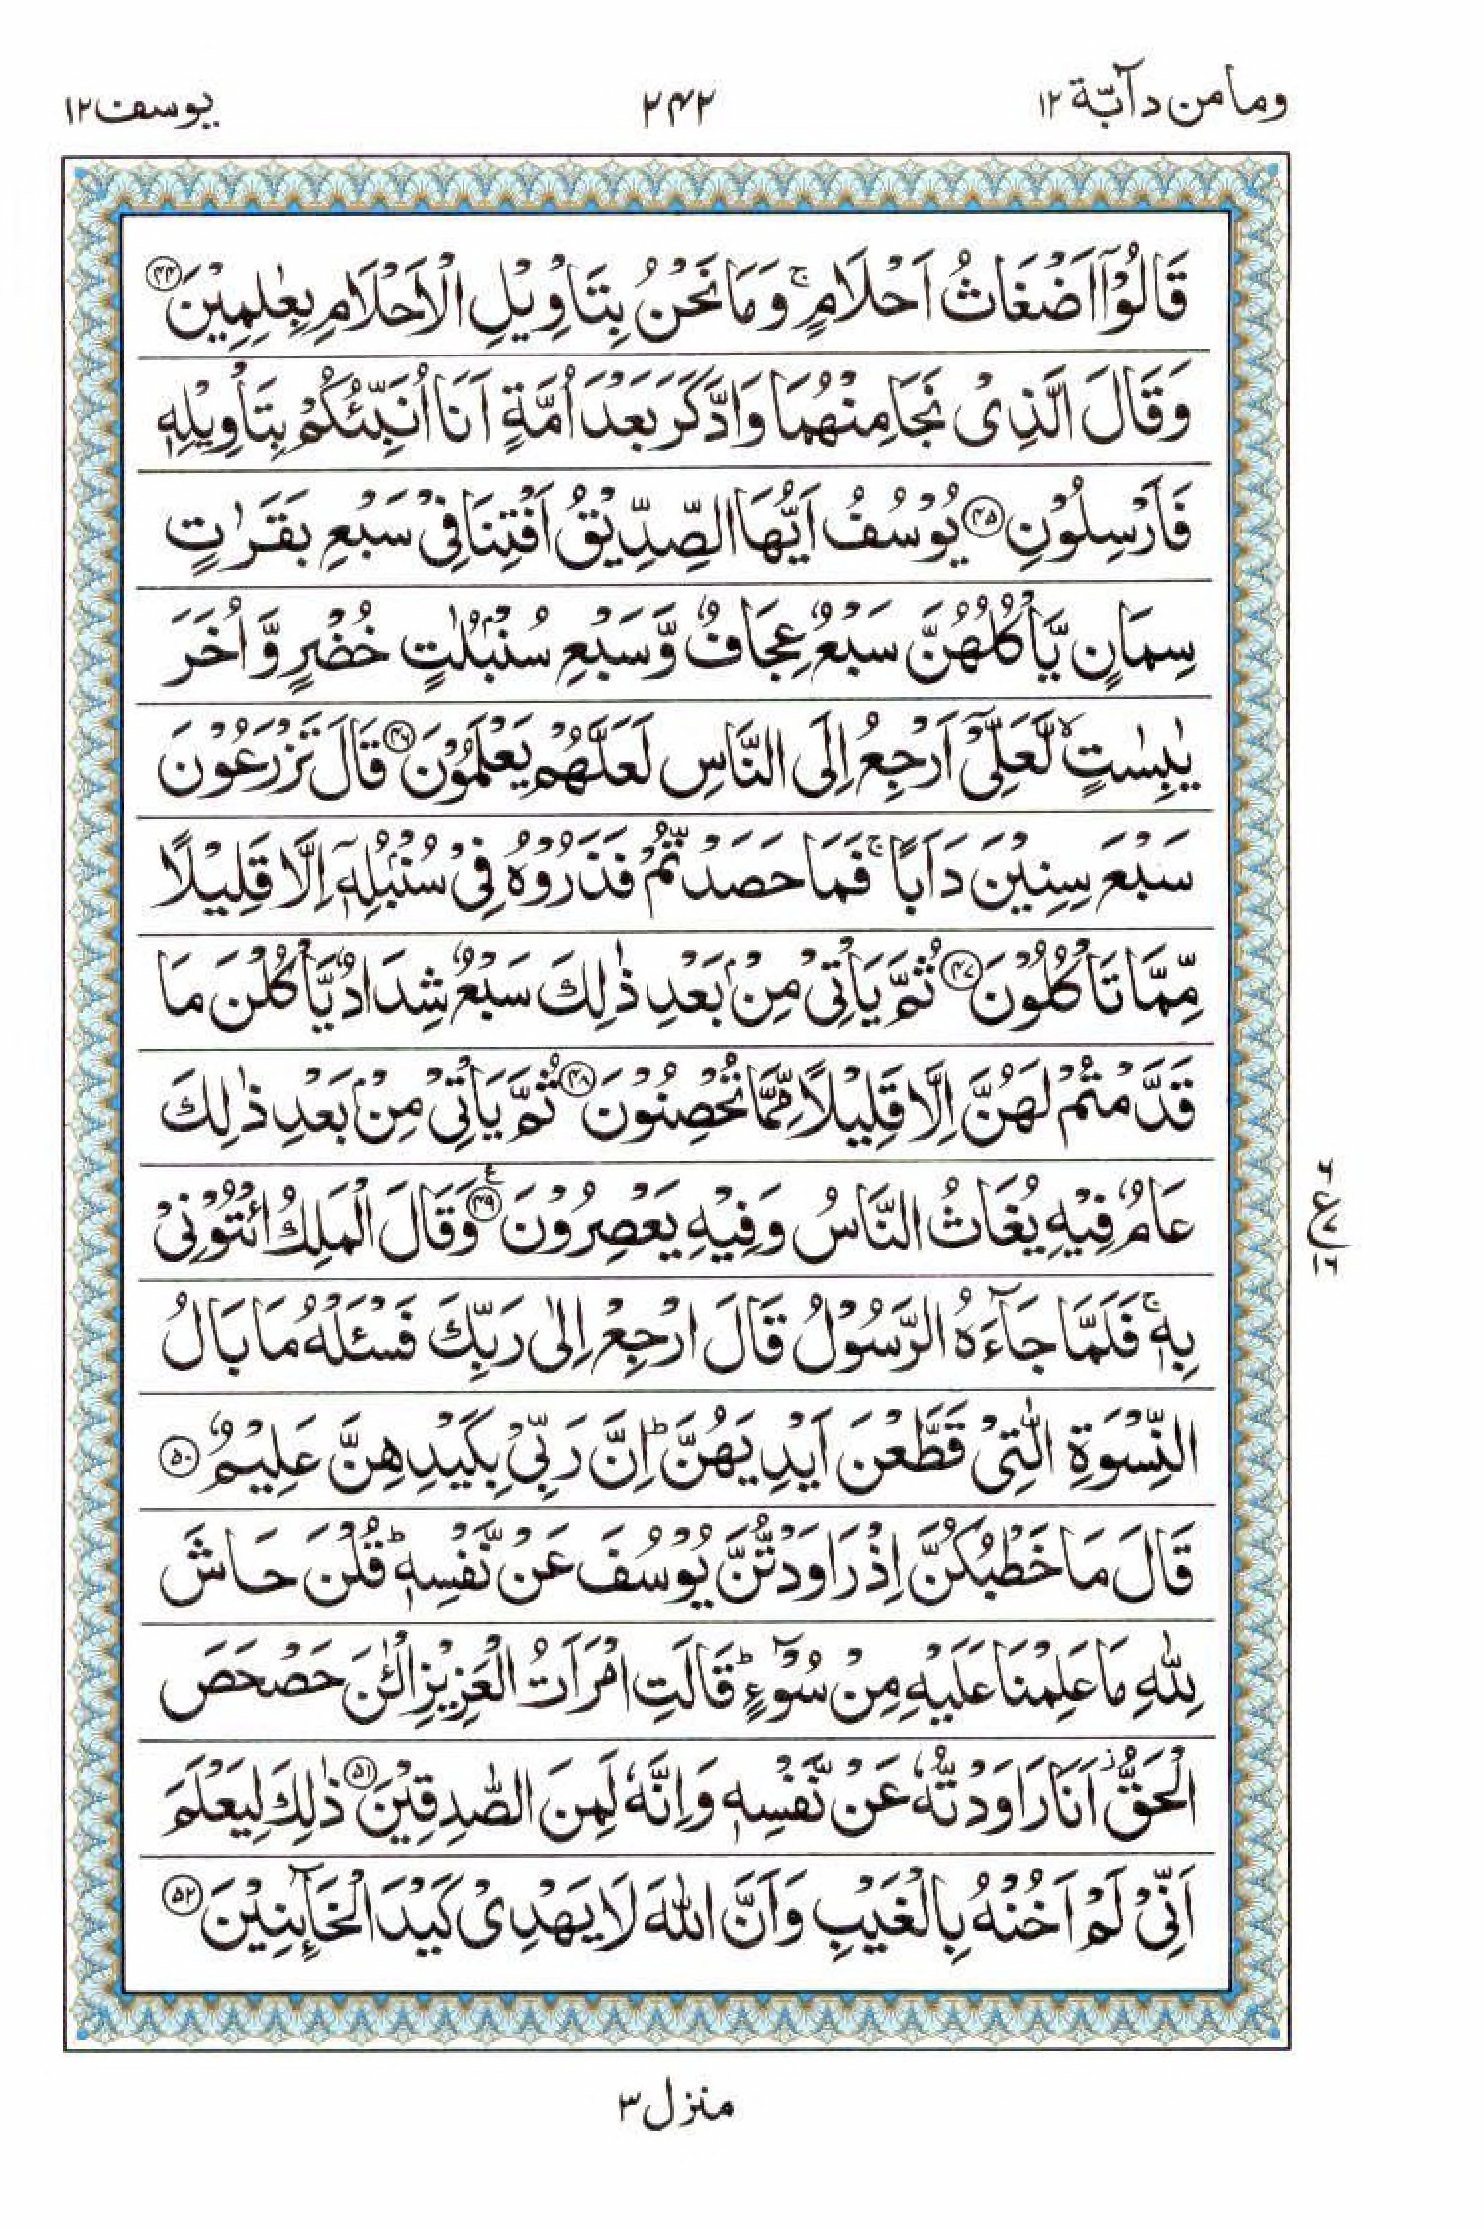 وما من دآبّة ١٢
٢٤٢
يوسف ١٢
قَالُوْۤا اَضْغَاثُ اَحْلَامٍ ۚ وَمَا نَحْنُ بِتَاْوِيْلِ الْاَحْلَامِ بِعٰلِمِيْنَ ﴿۴۴﴾
وَقَالَ الَّذِىْ نَجَا مِنْهُمَا وَادَّكَرَ بَعْدَ اُمَّةٍ اَنَا اُنَبِّئُكُمْ بِتَاْوِيْلِهٖ
فَاَرْسِلُوْنِ ﴿۴۵﴾ يُوْسُفُ اَيُّهَا الصِّدِّيْقُ اَفْتِنَا فِىْ سَبْعِ بَقَرٰتٍ
سِمَانٍ يَّاْكُلُهُنَّ سَبْعٌ عِجَافٌ وَّسَبْعِ سُنْۢبُلٰتٍ خُضْرٍ وَّاُخَرَ
يٰبِسٰتٍ ۙ لَّعَلِّىْۤ اَرْجِعُ اِلَى النَّاسِ لَعَلَّهُمْ يَعْلَمُوْنَ ﴿۴۶﴾ قَالَ تَزْرَعُوْنَ
سَبْعَ سِنِيْنَ دَاَبًا ۚ فَمَا حَصَدْتُّمْ فَذَرُوْهُ فِىْ سُنْۢبُلِهٖۤ اِلَّا قَلِيْلًا
مِّمَّا تَاْكُلُوْنَ ﴿۴۷﴾ ثُمَّ يَاْتِىْ مِنْۢ بَعْدِ ذٰلِكَ سَبْعٌ شِدَادٌ يَّاْكُلْنَ مَا
قَدَّمْتُمْ لَهُنَّ اِلَّا قَلِيْلًا مِّمَّا تُحْصِنُوْنَ ﴿۴۸﴾ ثُمَّ يَاْتِىْ مِنْۢ بَعْدِ ذٰلِكَ
عَامٌ فِيْهِ يُغَاثُ النَّاسُ وَفِيْهِ يَعْصِرُوْنَ ﴿۴۹﴾ ع وَقَالَ الْمَلِكُ ائْتُوْنِىْ
٦ ع ٧ ١٦
بِهٖ ۚ فَلَمَّا جَآءَهُ الرَّسُوْلُ قَالَ ارْجِعْ اِلٰى رَبِّكَ فَسْـَٔلْهُ مَا بَالُ
النِّسْوَةِ الّٰتِىْ قَطَّعْنَ اَيْدِيَهُنَّ ؕ اِنَّ رَبِّىْ بِكَيْدِهِنَّ عَلِيْمٌ ﴿۵۰﴾
قَالَ مَا خَطْبُكُنَّ اِذْ رَاوَدْتُّنَّ يُوْسُفَ عَنْ نَّفْسِهٖ ؕ قُلْنَ حَاشَ
لِلّٰهِ مَا عَلِمْنَا عَلَيْهِ مِنْ سُوْٓءٍ ؕ قَالَتِ امْرَاَتُ الْعَزِيْزِ الْـٰٔنَ حَصْحَصَ
الْحَقُّ ۫ اَنَا رَاوَدْتُّهٗ عَنْ نَّفْسِهٖ وَاِنَّهٗ لَمِنَ الصّٰدِقِيْنَ ﴿۵۱﴾ ذٰلِكَ لِيَعْلَمَ
اَنِّىْ لَمْ اَخُنْهُ بِالْغَيْبِ وَاَنَّ اللّٰهَ لَا يَهْدِىْ كَيْدَ الْخَآئِنِيْنَ ﴿۵۲﴾
منزل ٣